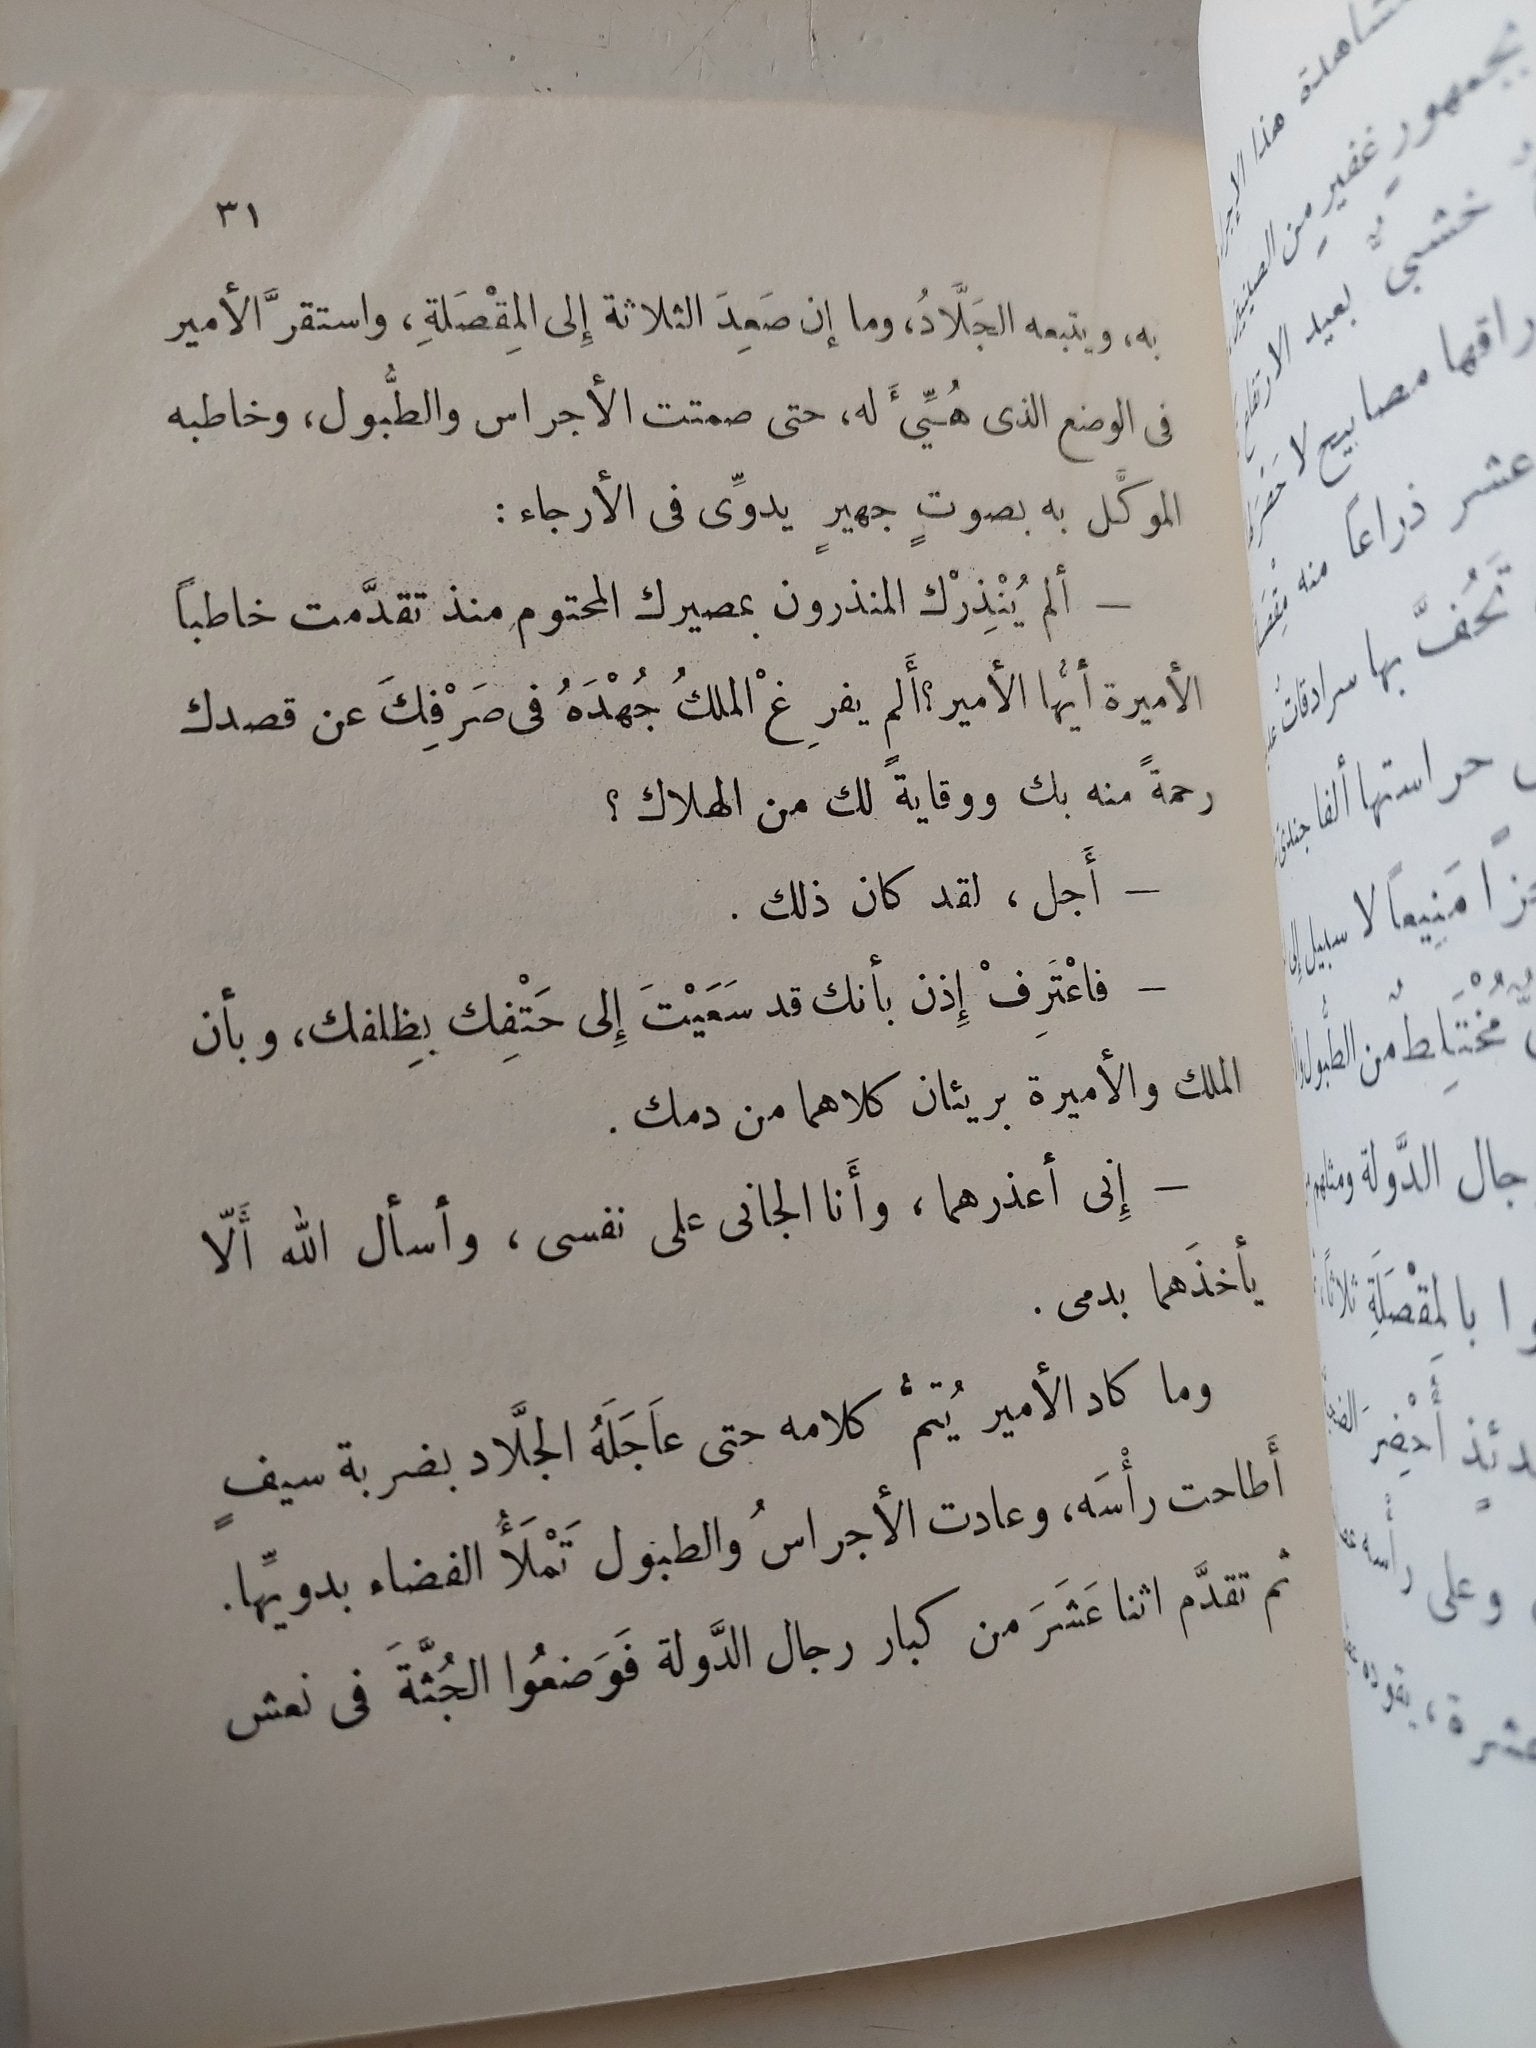 ٣١
به، ويتبعه الجَلَّادُ، وما إن صَعِدَ الثلاثة إِلى المِقْصَلَةِ، واستقرَّ الأمير
فى الوضع الذى هُيِّئَ له، حتى صمتت الأجراس والطُّبول، وخاطبه
الموكَّل به بصوتٍ جهيرٍ يدوِّى فى الأرجاء :
— ألم يُنْذِرْك المنذرون بمصيرك المحتوم منذ تقدَّمت خاطباً
الأميرة أيُّها الأمير؟ أَلم يفرِغْ الملكُ جُهْدَهُ فى صَرْفِكَ عن قصدك
رحمةً منه بك ووقايةً لك من الهلاك ؟
— أَجل ، لقد كان ذلك .
— فاعْتَرِفْ إِذن بأنك قد سَعَيْتَ إِلى حَتْفِك بِظِلفك، وبأن
الملك والأميرة بريئان كلاهما من دمك .
— إِنى أعذرهما ، وأَنا الجانى على نفسى ، وأسأل الله أَلّا
يأخذَهما بدمى .
وما كاد الأمير يُتمْ كلامه حتى عاَجَلَهُ الجلَّاد بضربة سيفٍ
أَطاحت رأْسَه، وعادت الأجراسُ والطبول تَمْلَأُ الفضاء بدويِّها.
ثم تقدَّم اثنا عَشَرَ من كبار رجال الدَّولة فَوَضعُوا الجُثَّةَ فى نعش
مشاهدة هذا
بجمهورٍ غفيرٍ من
خشبىٌّ بعيد الارتفاع
مصابيح لا
عشر ذراعاً منه
تَحُفُّ بها سرادقات
حراستها ألفا
مَنِيعاً لا سبيل إلى
مُخْتَلِطٌ من الطُّبول
الدَّولة ومثلهم
بالمِقْصَلَةِ ثلاثاً،
أُحْضِرَ
وعلى رأسه
يقوده